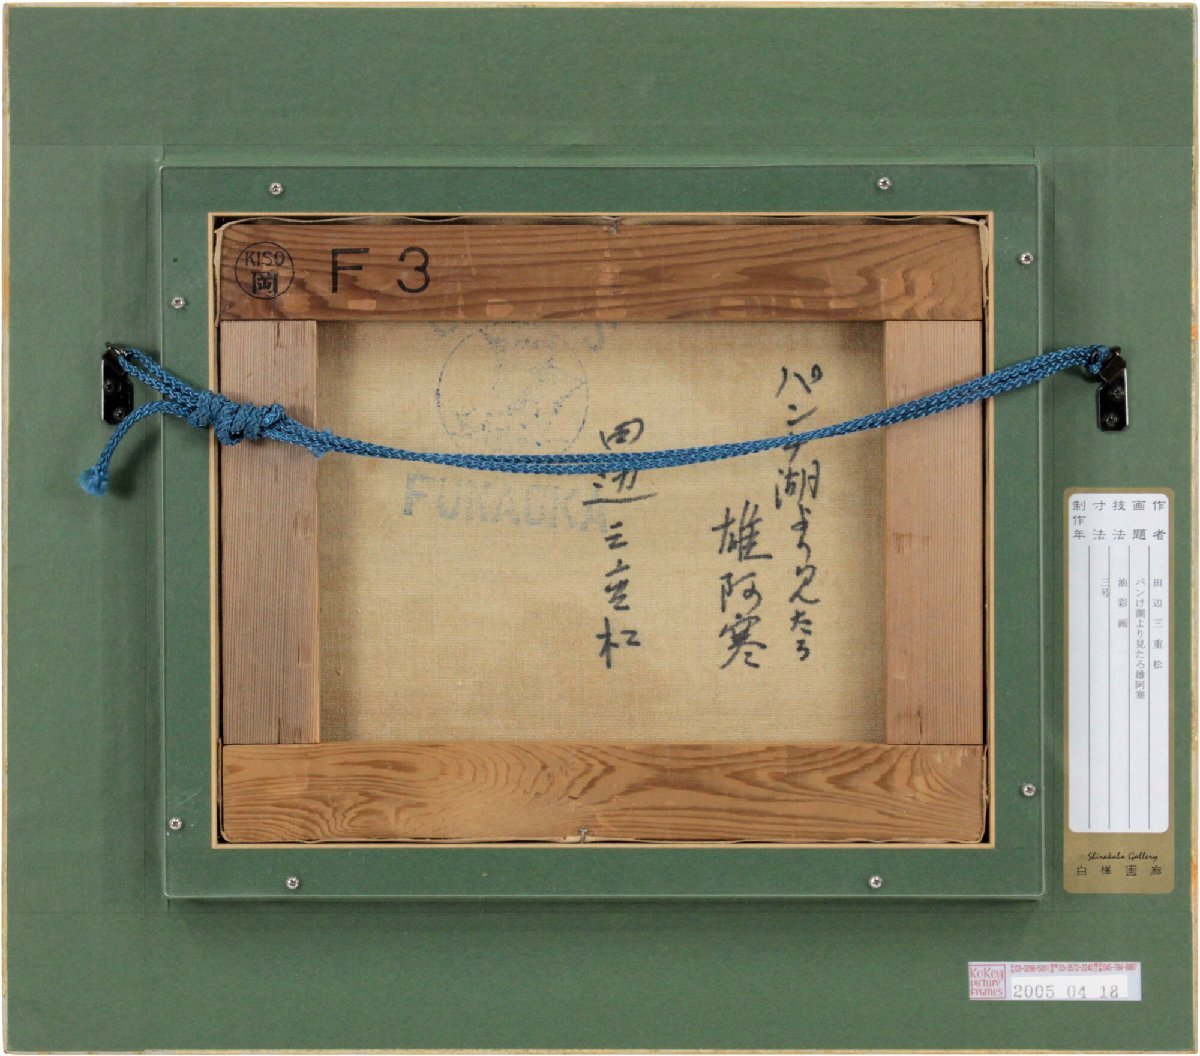 KISO
岡
F 3
FUNAOKA
パンケ湖より見たろ
雄阿寒
田辺三重松
作者 田辺三重松
画題 パンけ湖より見たろ雄阿寒
技法 油彩画
寸法 三号
制作年
Shirakaba Gallery
白樺画廊
KoKey
PICTURE
FRAMES
2005 04 18